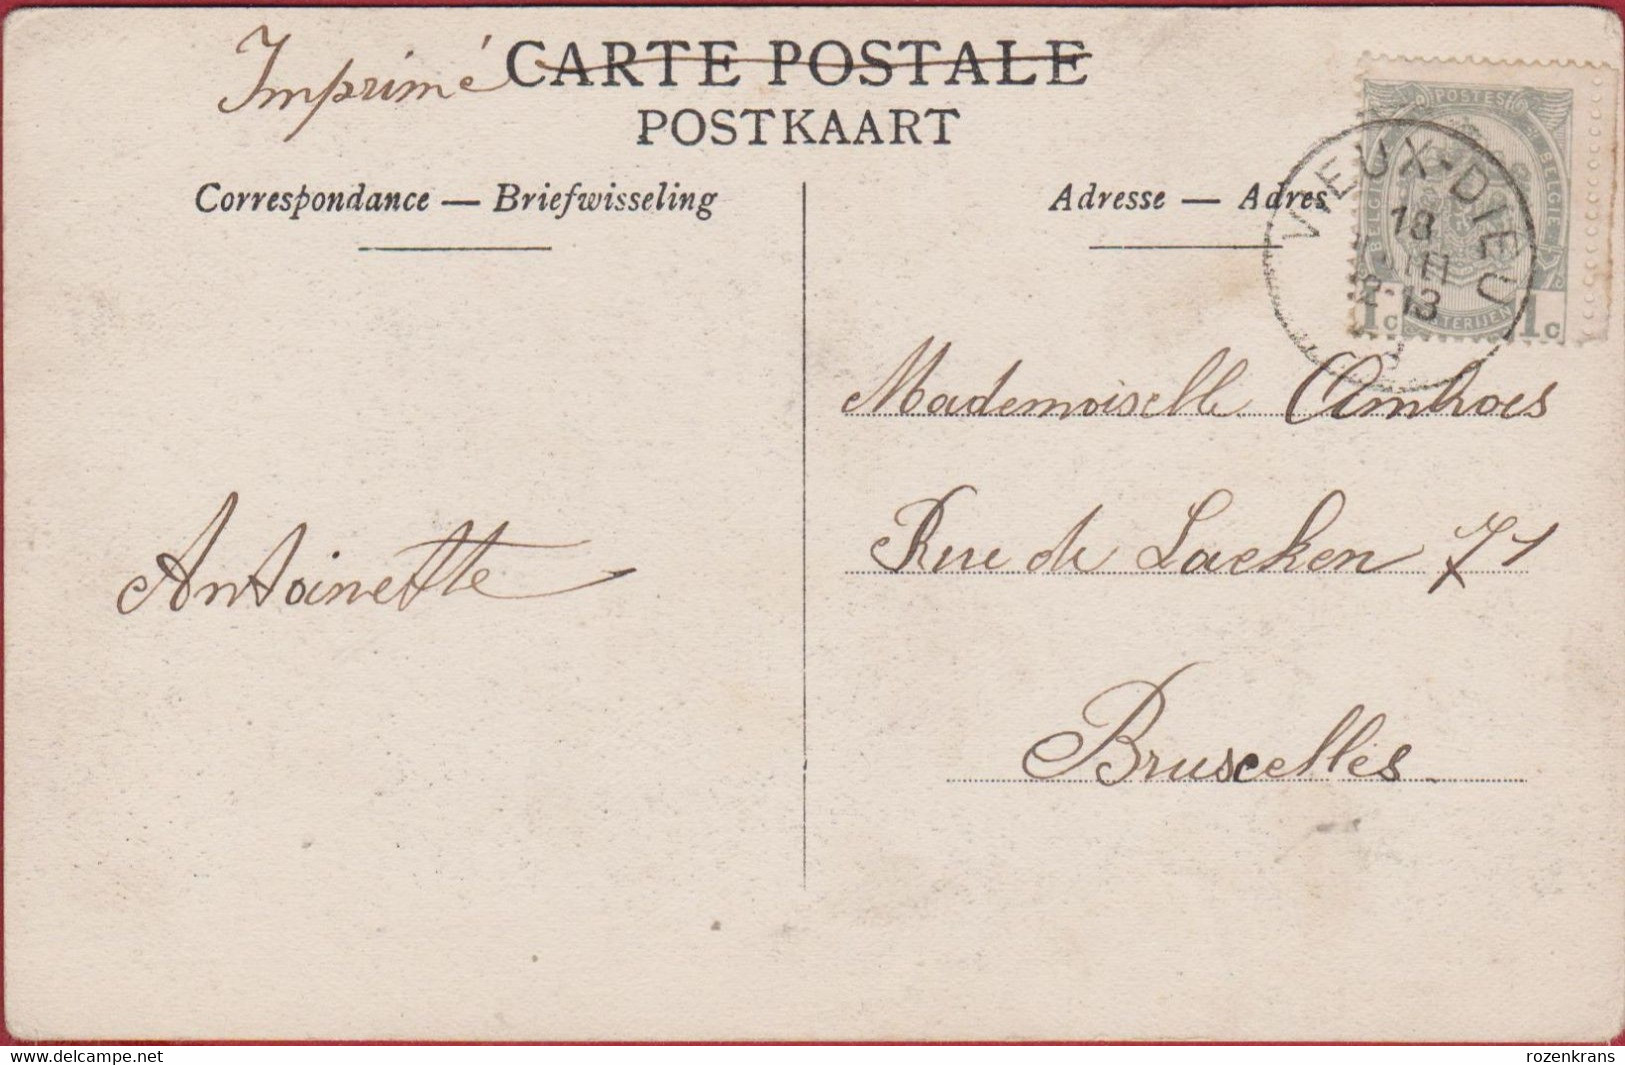 Imprimé CARTE POSTALE
POSTKAART
Correspondance — Briefwisseling
Adresse — Adres
POSTES
BELGIQUE
BELGIË
1c 1c
VIEUX-DIEU
18
13
Mademoiselle
Rue de Laeken 71
Antoinette
Bruxelles
delcampe.net
rozenkrans